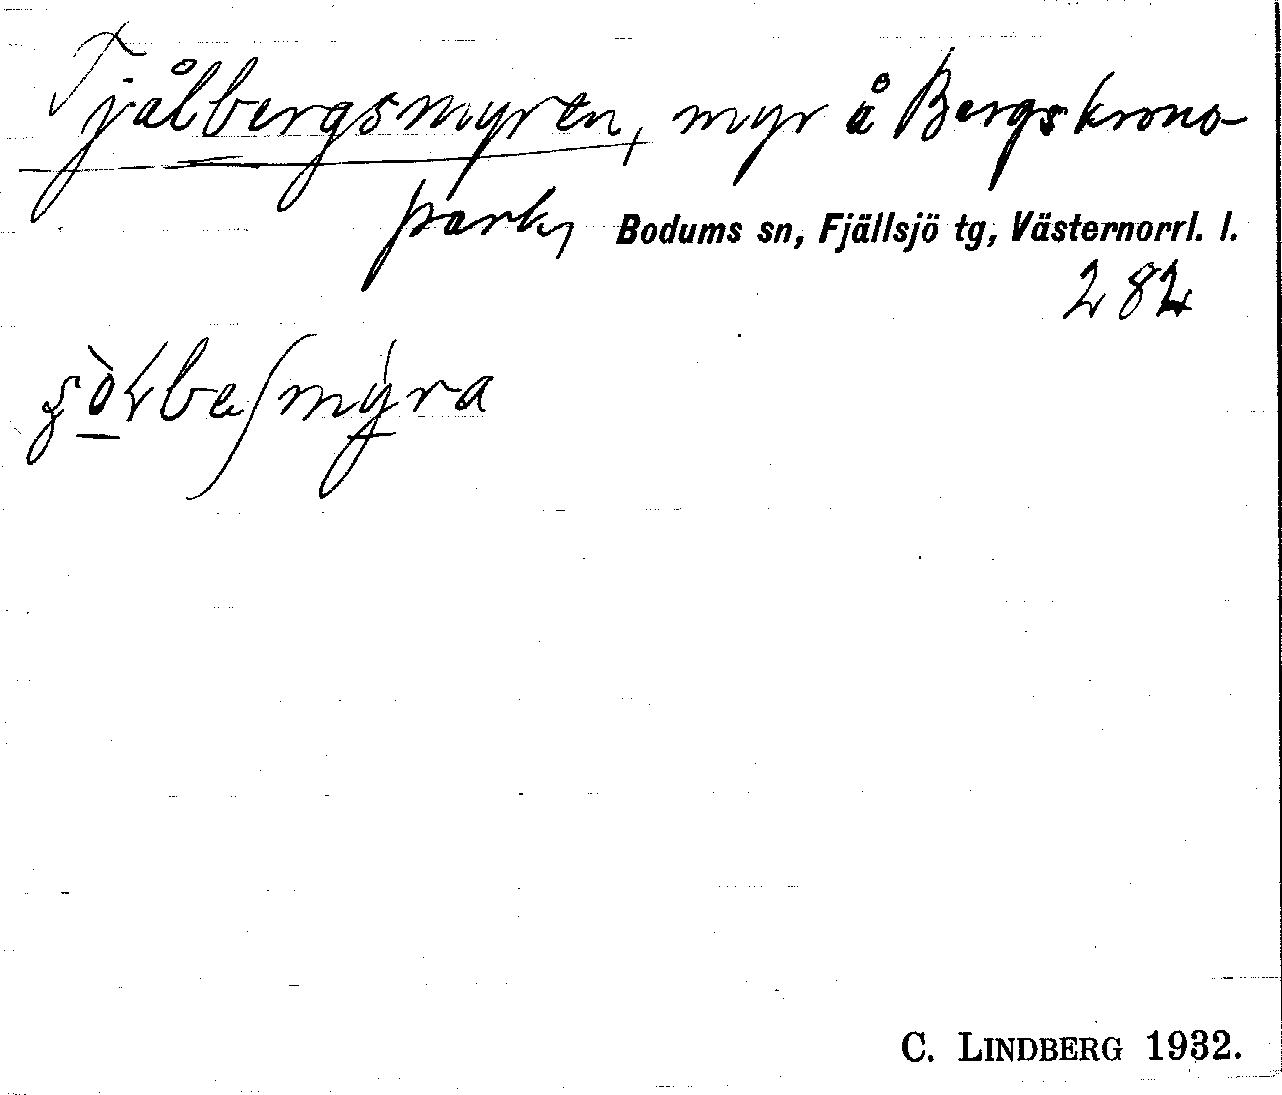 Tjålbergsmyren, myr å Bergs krono-
park, Bodums sn, Fjällsjö tg, Västernorrl. l.
282
C. LINDBERG 1932.